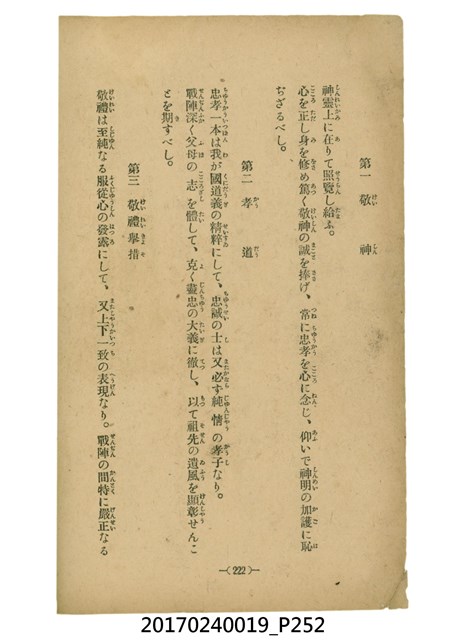 第一 敬神
神靈上に在りて照覽し給ふ。
心を正し身を修め篤く敬神の誠を捧げ、常に忠孝を心に念じ、仰いで神明の加護に恥
ぢざるべし。
第二 孝道
忠孝一本は我が國道義の精粹にして、忠誠の士は又必ず純情の孝子なり。
戰陣深く父母の志を體して、克く盡忠の大義に徹し、以て祖先の遺風を顯彰せんこ
とを期すべし。
第三 敬禮擧措
敬禮は至純なる服從心の發露にして、又上下一致の表現なり。戰陣の間特に嚴正なる
—(222)—
20170240019_P252